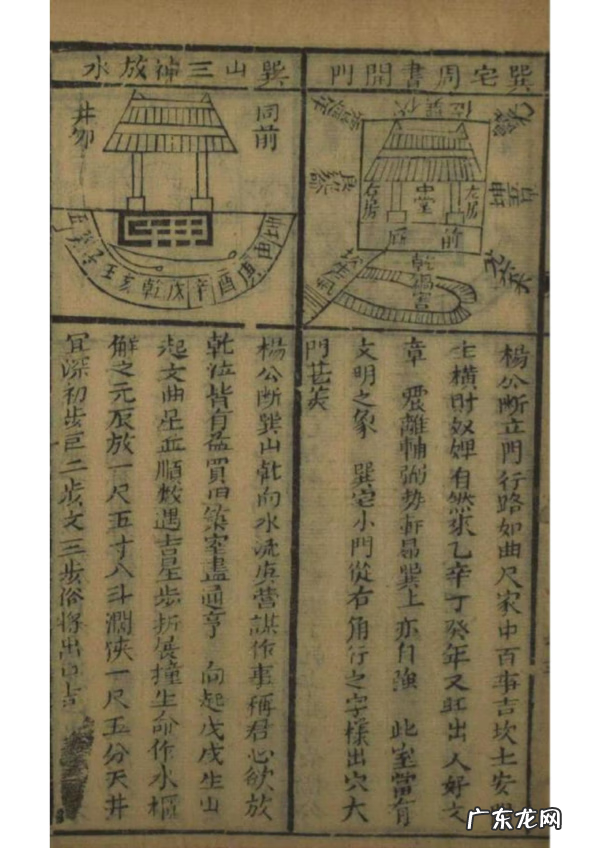 巽宅周書開門
中堂
左房
右房
前
乾
楊公斷立門行路如曲尺家中百事吉坎土安
生橫財奴婢有然來乙辛丁癸年又旺出人好文
章 震離輔弼勢軒昂巽上亦自強 此室當有
文明之象 巽宅小門從右角行之字樣出穴大
門
巽山三神放水
同前
井卯
子壬亥乾戌辛酉庚
楊公斷巽山乾向水流庚營謀作事稱君心欲放
乾流皆有益買田築室盡通亨 向起戊戌生山
起文曲星並順數遇吉星步折展撞生命作水樞
解之元辰放一尺五寸八斗濶狹一尺五分天井
宜深初步巨二步文三步俗將出中吉
广东龙网